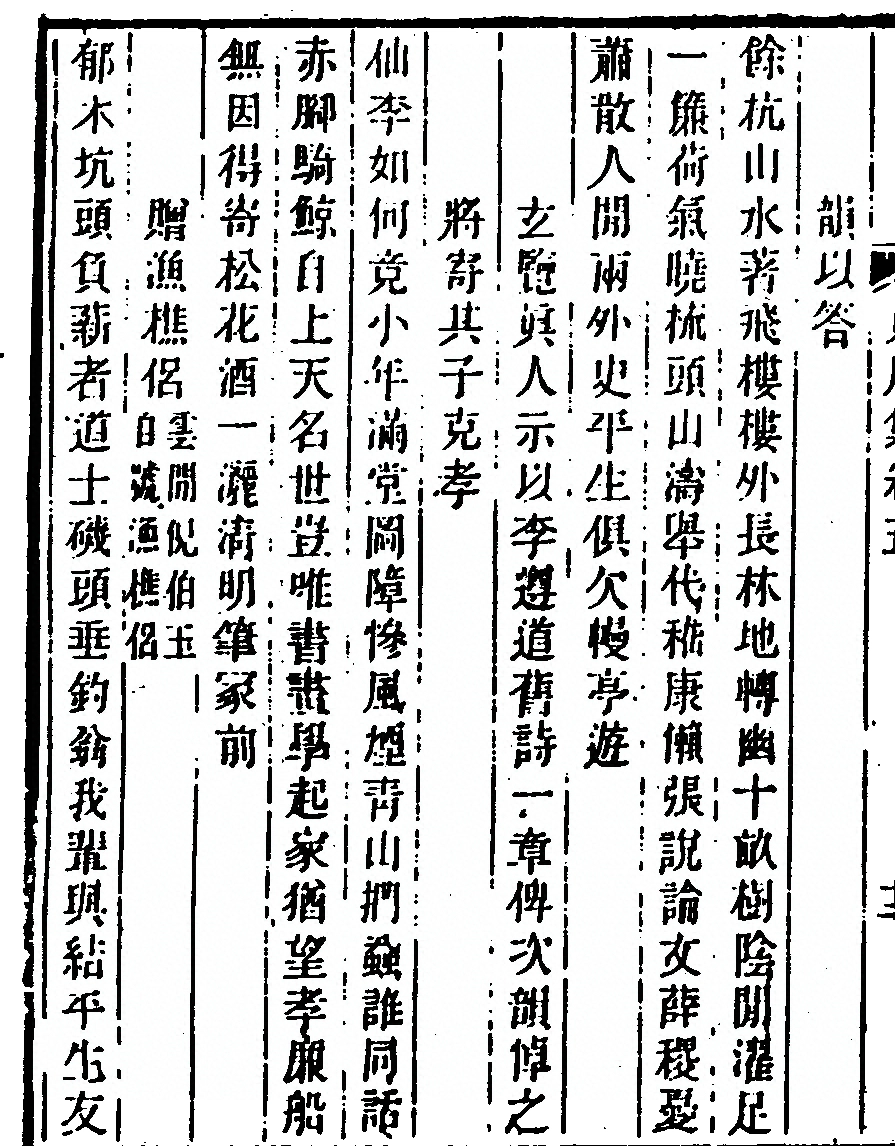 韻以答
餘杭山水著飛樓樓外長林地轉幽十畝樹陰閒濯足
一簾荷氣曉梳頭山濤舉代嵇康懶張說論文薛稷憂
蕭散人間兩外史平生俱欠幔亭遊
玄覽眞人示以李遵道舊詩一章俾次韻悼之
將寄其子克孝
仙李如何竟小年滿堂圖障慘風煙青山捫蝨誰同話
赤腳騎鯨自上天名世豈唯書畫學起家猶望孝廉船
無因得寄松花酒一灑清明筆冢前
贈漁樵侶雲間倪伯玉
自號漁樵侶
郁木坑頭負薪者道士磯頭垂釣翁我輩與結平生友